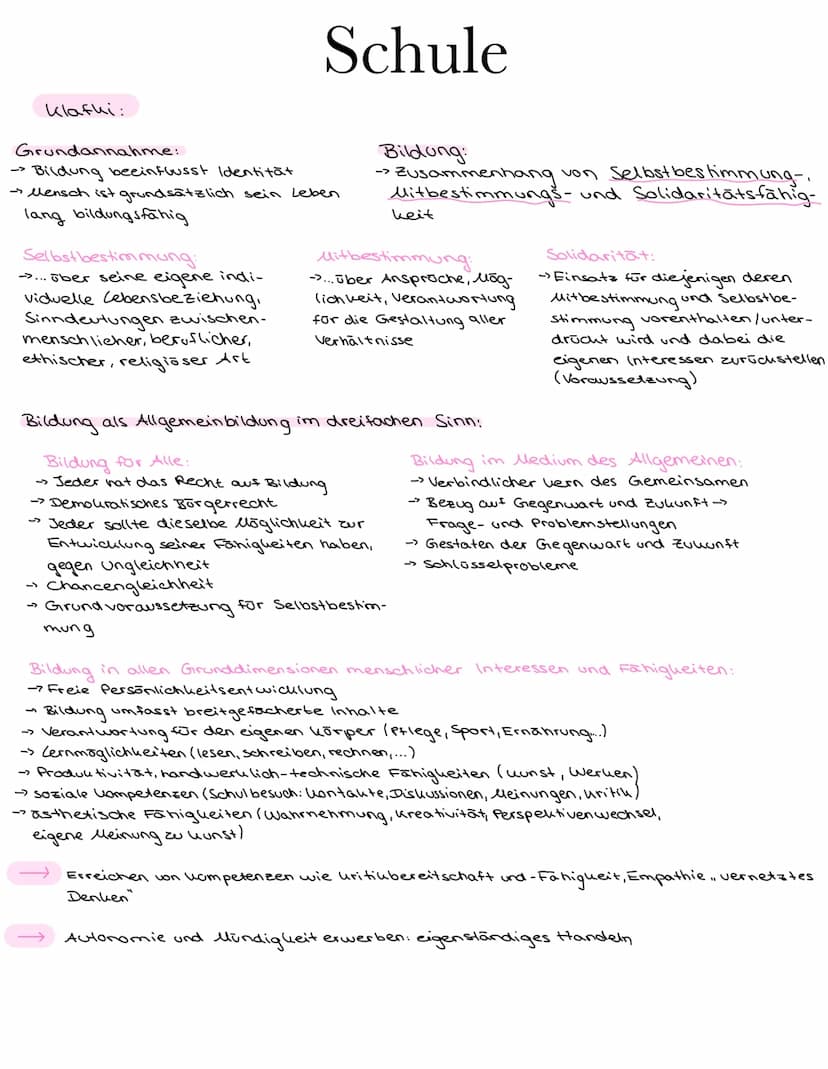 Schule
Klafki:
Grundannahme:
→ Bildung beeinflusst Identität
→ Mensch ist grundsätzlich sein Leben
lang bildungsfähig
Bildung:
→ Zusammenhang von Selbstbestimmung-,
Mitbestimmungs- und Solidaritätsfähig-
keit
Selbstbestimmung:
→... über seine eigene indi-
viduelle Lebensbeziehung,
Sinndeutungen zwischen-
menschlicher, beruflicher,
ethischer, religiöser Art
Mitbestimmung:
→...über Ansprüche, Mög-
lichkeit, Verantwortung
für die Gestaltung aller
Verhältnisse
Solidarität:
→ Einsatz für diejenigen deren
Mitbestimmung und Selbstbe-
stimmung vorenthalten/unter-
drückt wird und dabei die
eigenen Interessen zurückstellen
(Voraussetzung)
Bildung als Allgemeinbildung im dreifachen Sinn:
Bildung für Alle:
→ Jeder hat das Recht auf Bildung
→ Demokratisches Bürgerrecht
→ Jeder sollte dieselbe Möglichkeit zur
Entwicklung seiner Fähigkeiten haben,
gegen Ungleichheit
→ Chancengleichheit
→ Grundvoraussetzung für Selbstbestim-
mung
Bildung im Medium des Allgemeinen:
→ Verbindlicher Kern des Gemeinsamen
→ Bezug auf Gegenwart und Zukunft →
Frage- und Problemstellungen
→ Gestaten der Gegenwart und Zukunft
→ Schlüsselprobleme
Bildung in allen Grunddimensionen menschlicher Interessen und Fähigkeiten:
→ Freie Persönlichkeitsentwicklung
→ Bildung umfasst breitgefächerte Inhalte
→ Verantwortung für den eigenen Körper (Pflege, Sport, Ernährung...)
→ Lernmöglichkeiten (lesen, schreiben, rechnen,...)
→ Produktivität, handwerklich-technische Fähigkeiten (Kunst, Werken)
→ soziale Kompetenzen (Schulbesuch: Kontakte, Diskussionen, Meinungen, Kritik)
→ ästhetische Fähigkeiten (Wahrnehmung, Kreativität, Perspektivenwechsel,
eigene Meinung zu Kunst)
→ Erreichen von Kompetenzen wie Kritikbereitschaft und -Fähigkeit, Empathie „vernetztes
Denken"
→ Autonomie und Mündigkeit erwerben: eigenständiges Handeln